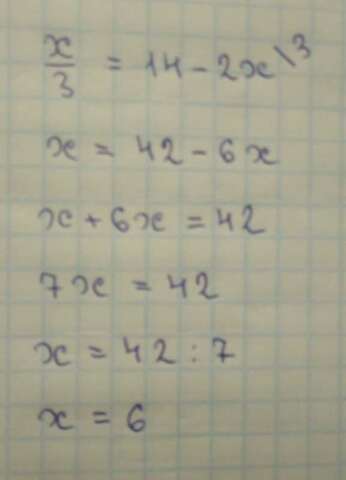 x/3 = 14 - 2x \3
x = 42 - 6x
x + 6x = 42
7x = 42
x = 42 : 7
x = 6